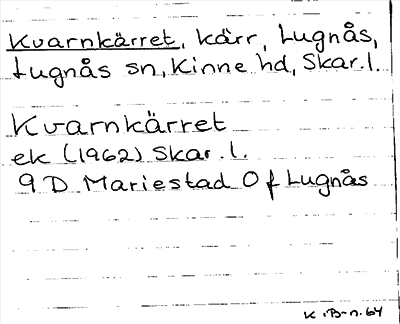 Kvarnkärret, kärr, Lugnås,
Lugnås sn, Kinne hd, Skar.l.
Kvarnkärret
ek (1962) Skar.l.
9D Mariestad 0f Lugnås
K.B-n.64